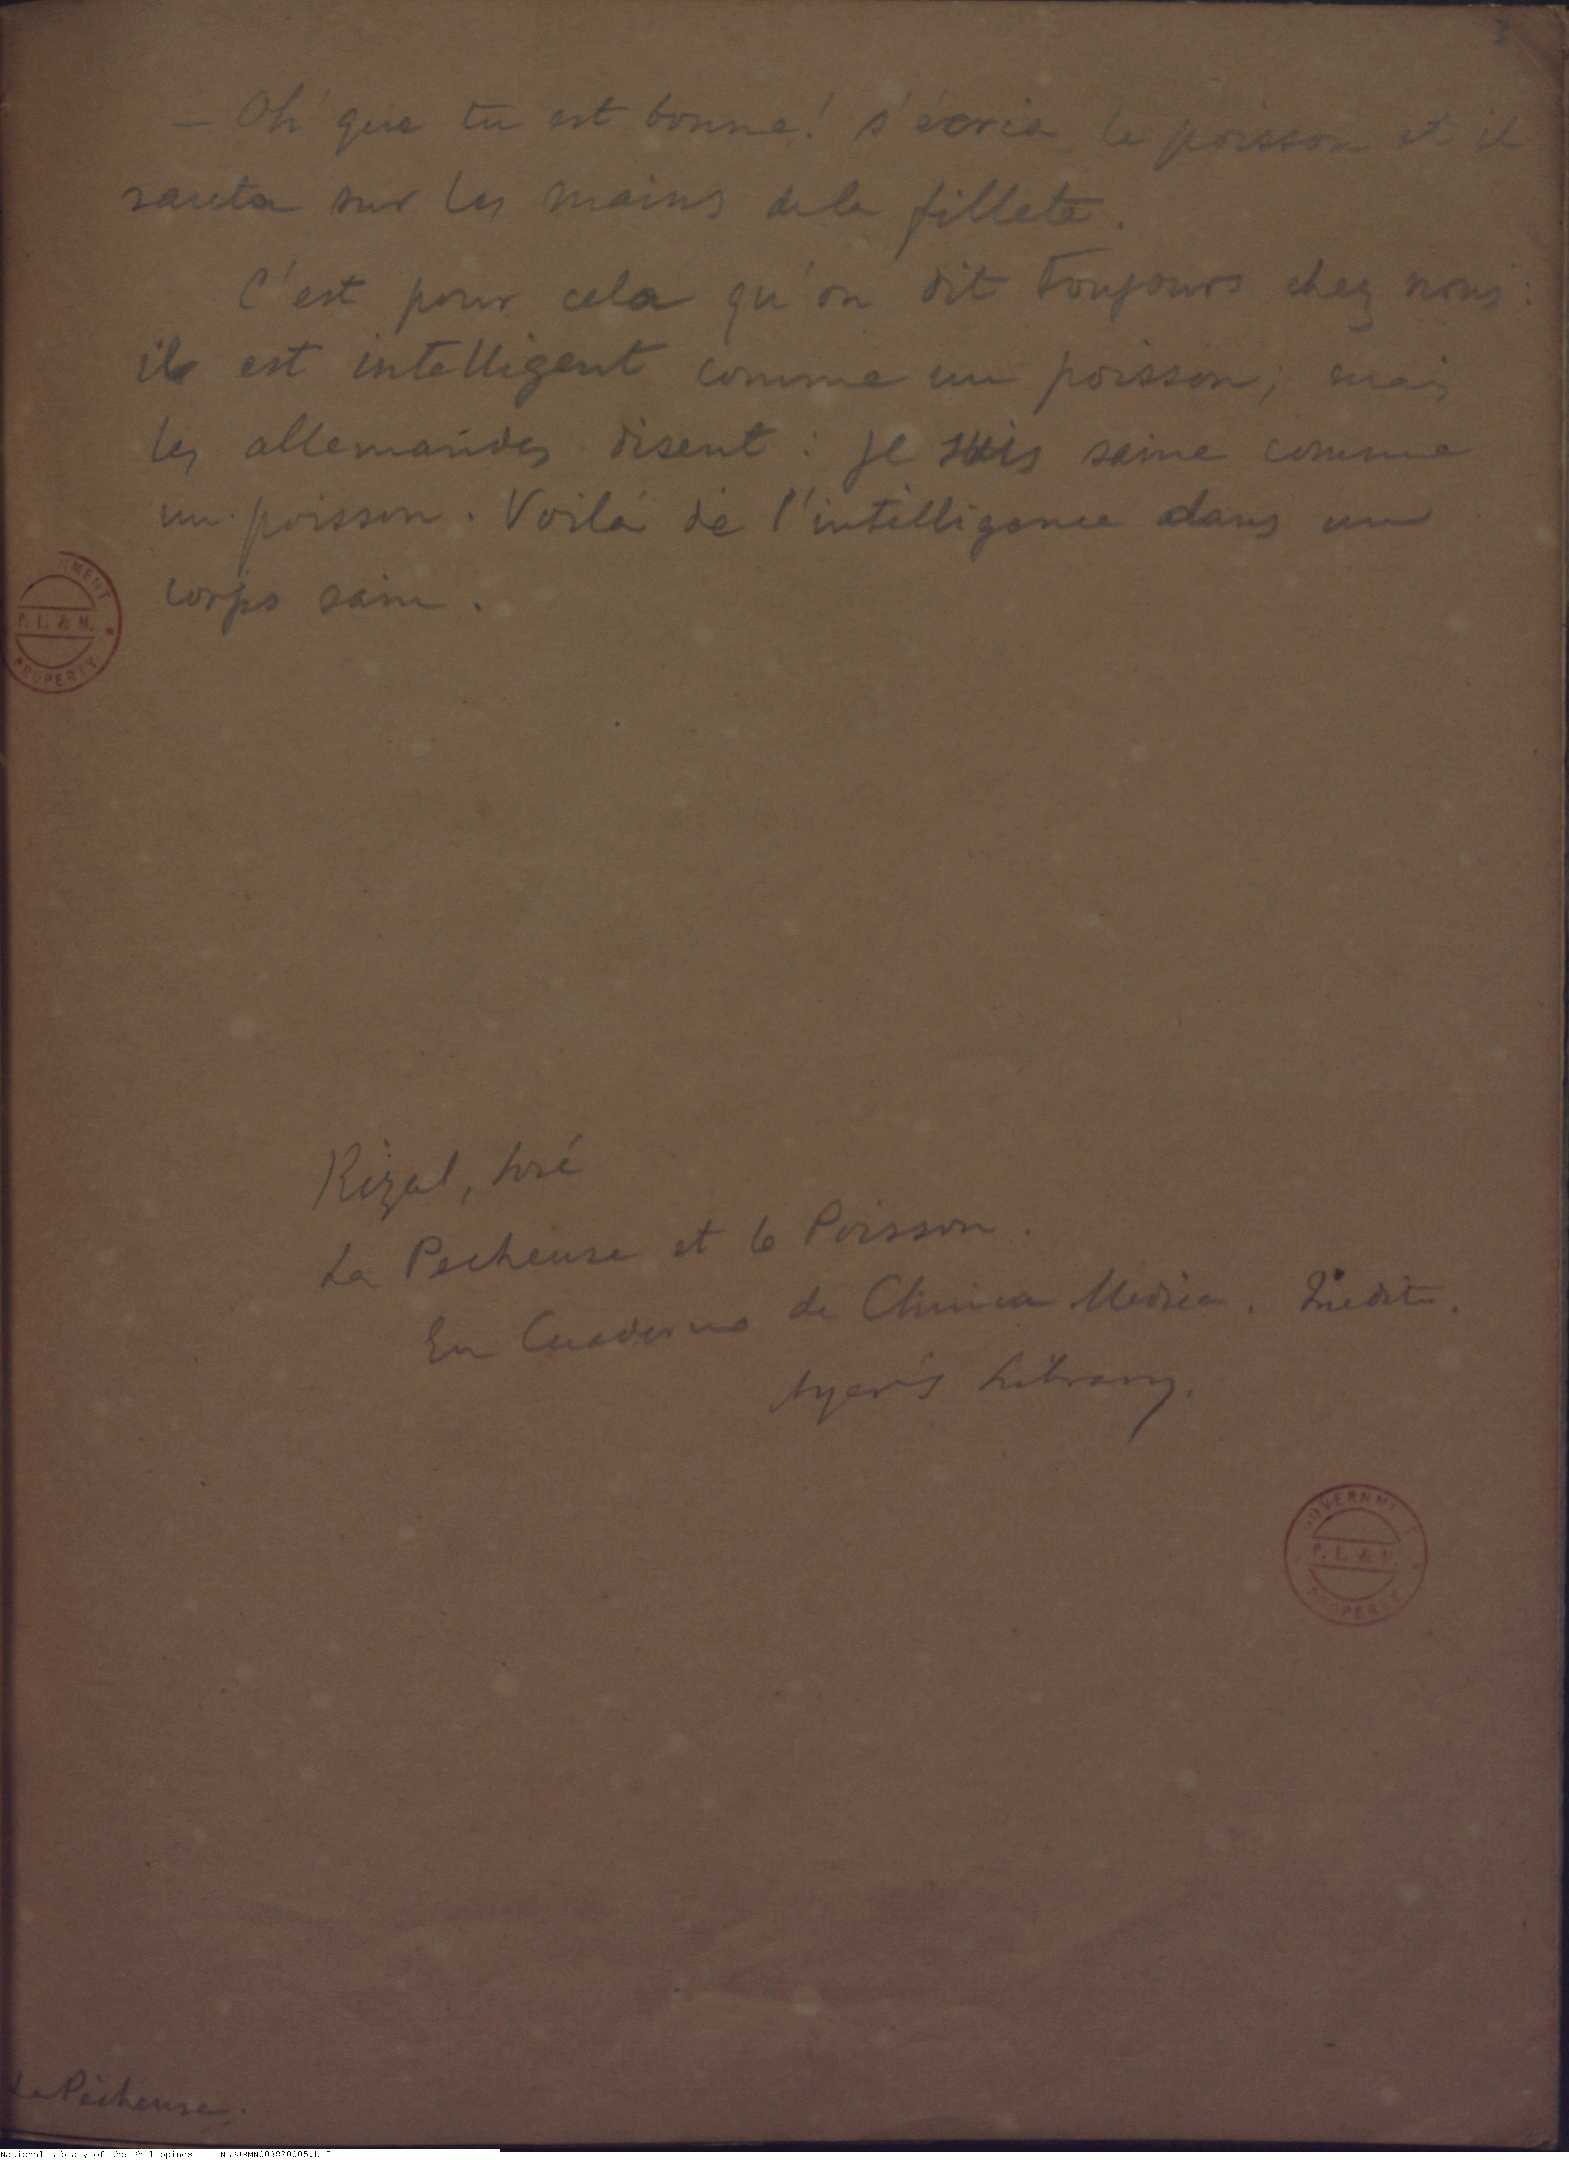 3
— Oh que tu est bonne! s'écria le poisson et il
sauta sur les mains de la fillete.
C'est pour cela qu'on dit toujours chez nous:
il est intelligent comme un poisson; mais
les allemandes disent: je suis saine comme
un poisson. Voilà de l'intelligence dans un
corps sain.
MENT
P. L. & M.
PROPERTY
Rizal, José
La Pecheuse et le Poisson.
En Cuaderno de Clinica Medica. Inedito.
Ayer's Library.
GOVERNMENT
P. L. & M.
PROPERTY
La Pêcheuse.
National Library of the Philippines